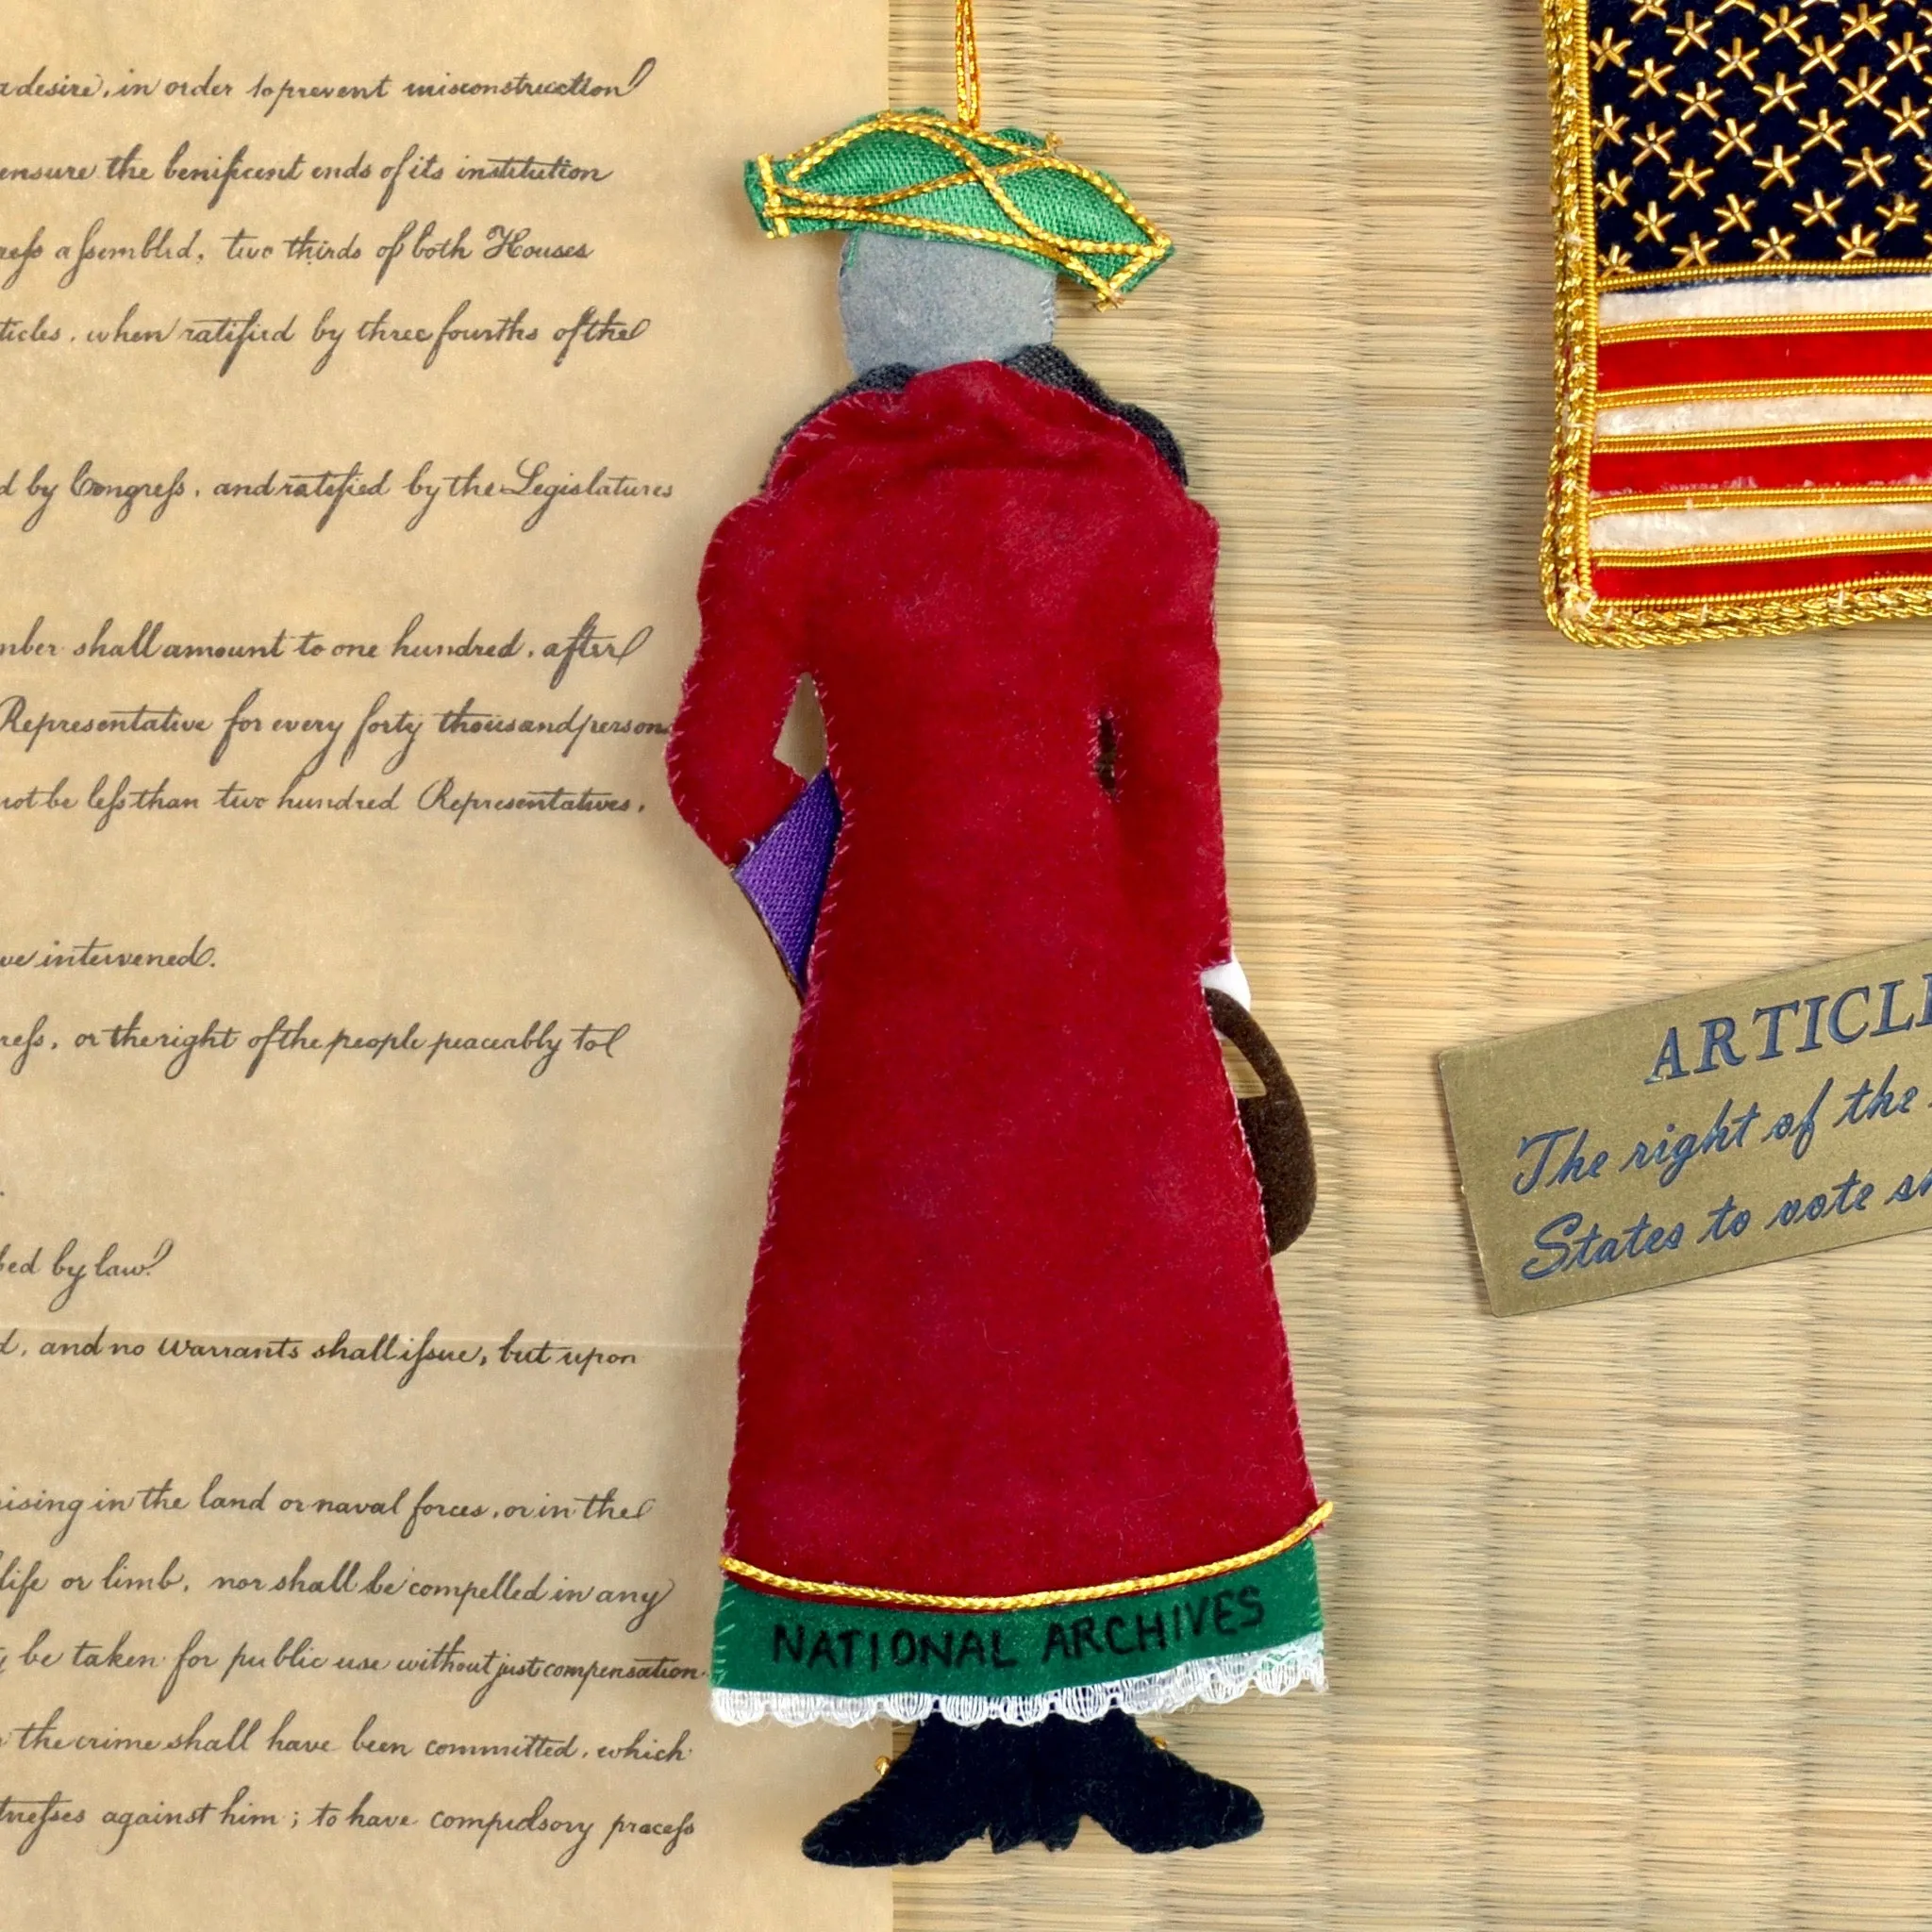 desire, in order to prevent misconstruction
ensure the benificent ends of its institution
aſsembled, two thirds of both Houses
when ratified by three fourths of the
by Congreſs, and ratified by the Legislatures
shall amount to one hundred, after
Representative for every forty thousand person
not be leſs than two hundred Representatives,
intervened.
or the right of the people peaceably to
by law.
and no Warrants shall iſsue, but upon
in the land or naval forces, or in the
life or limb, nor shall be compelled in any
be taken for public use without just compensation.
the crime shall have been committed, which
against him; to have compulsory proceſs
NATIONAL ARCHIVES
ARTICLE
The right of the
States to vote